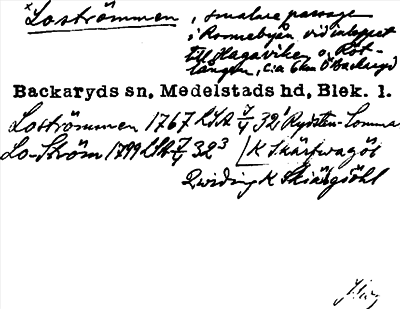 × Loströmmen, smalare passage
i Ronnebyån vid inloppet
till Hagaviken o. Rot-
lången, c:a 6 km Ö Backaryd
Backaryds sn, Medelstads hd, Blek. l.
Loströmmen 1767 LSA 7/4 32¹ Rydsten-Lomma
Lo-Ström 1799 LSA 7/4 32³ K Skärfwagöl
Qwiding K Skiärgiöhl